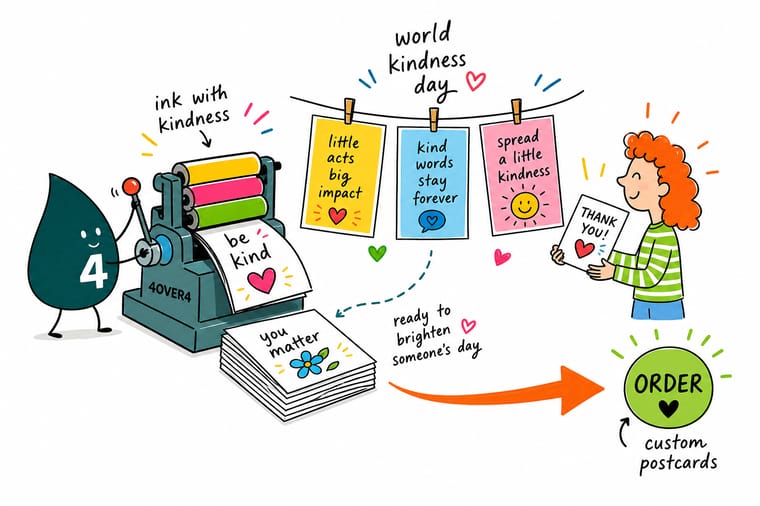 world
kindness
day
ink with
kindness
little
acts
big
impact
kind
words
stay
forever
spread
a little
kindness
THANK
YOU!
4
be
kind
4OVER4
you
matter
ready to
brighten
someone's day
ORDER
custom
postcards